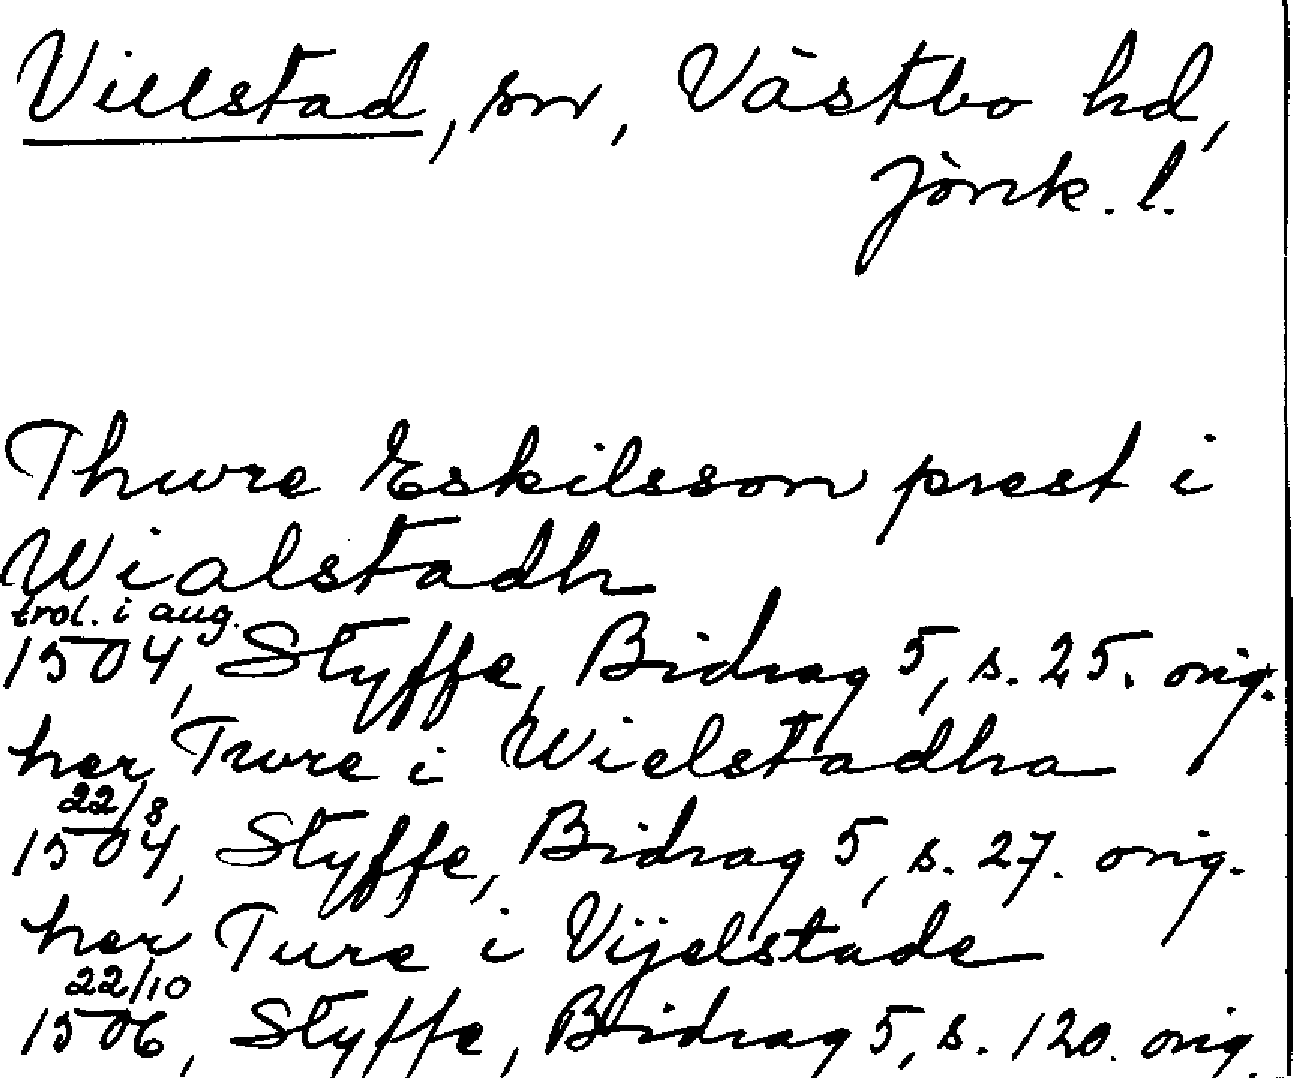 Villstad, sn, Västbo hd,
Jönk. l.
Thure Eskilsson prest i
Wialstadh
trol. i aug.
1504, Styffe, Bidrag 5, s. 25. orig.
her Twre i Wielstadha
22/8
1504, Styffe, Bidrag 5, s. 27. orig.
her Ture i Vijelstade
22/10
1506, Styffe, Bidrag 5, s. 120. orig.